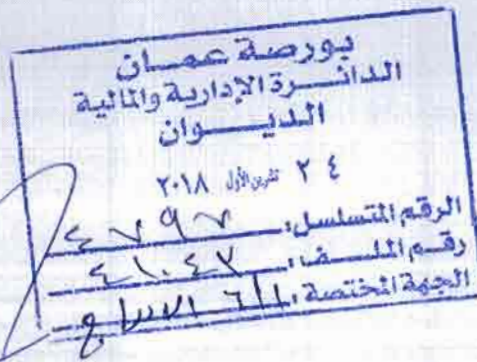 بورصة عمان
الدائرة الإدارية والمالية
الديوان
٢٤ تشرين الأول ٢٠١٨
الرقم المتسلسل: ٤٧٩٧
رقم الملف: ٤١٠٤٧
الجهة المختصة: